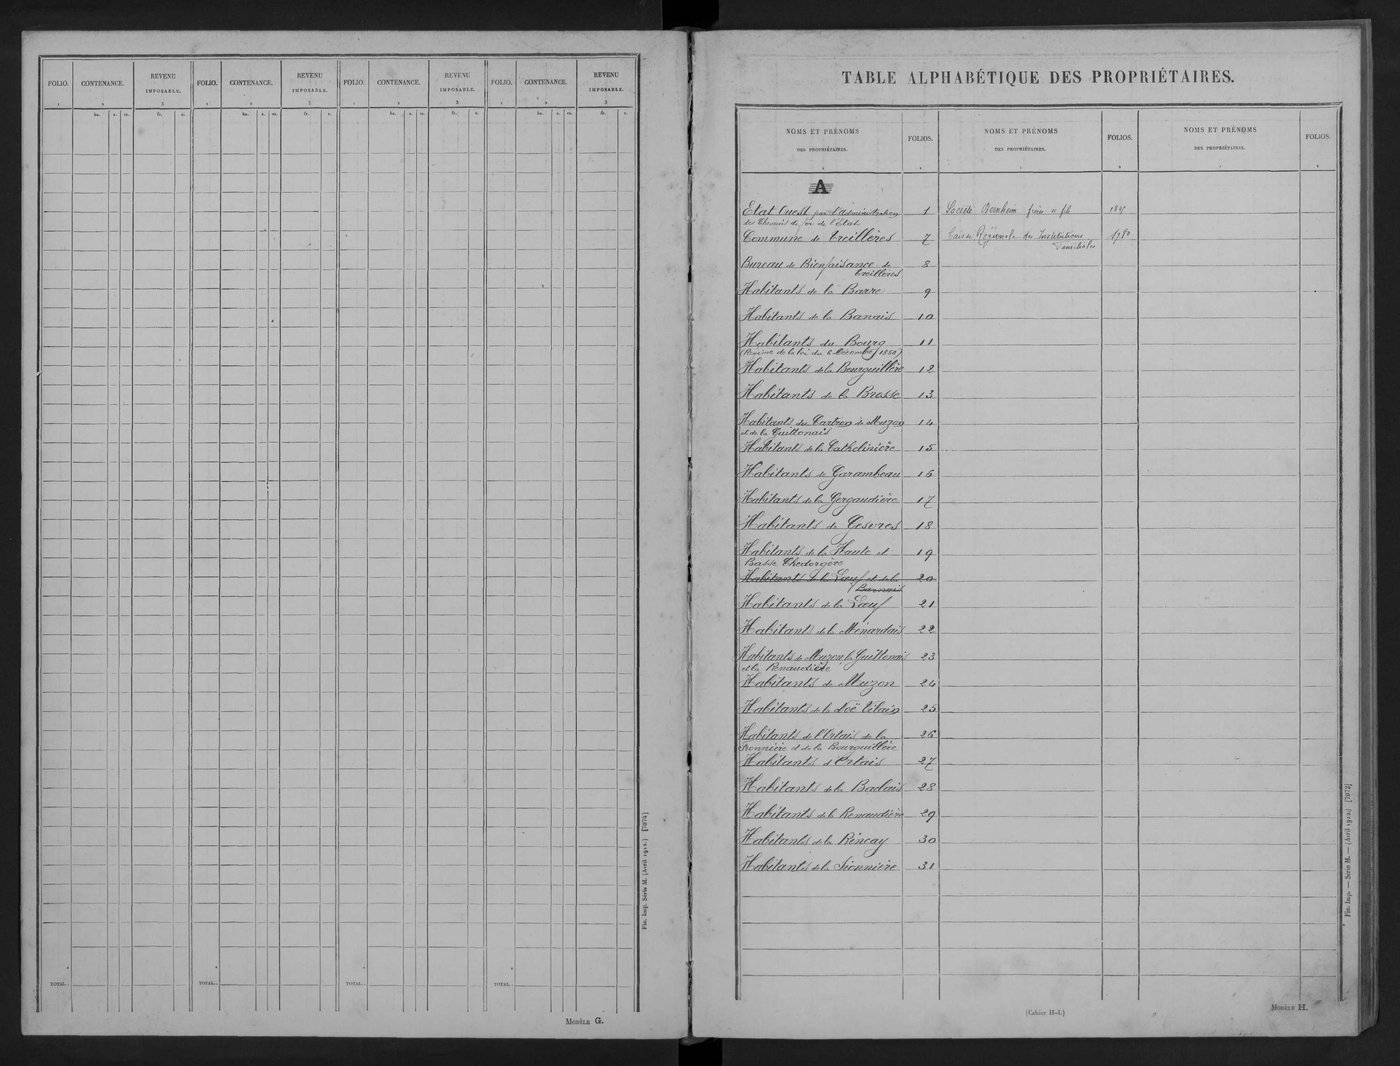 FOLIO. CONTENANCE. REVENU IMPOSABLE. FOLIO. CONTENANCE. REVENU IMPOSABLE. FOLIO. CONTENANCE. REVENU IMPOSABLE. FOLIO. CONTENANCE. REVENU IMPOSABLE.
1 2 3 1 2 3 1 2 3 1 2 3
ha. a. ca. fr. c. ha. a. ca. fr. c. ha. a. ca. fr. c. ha. a. ca. fr. c.
TOTAL. TOTAL. TOTAL. TOTAL.
Fin. Imp. Série M. (Avril 1912.) [7074]
MODÈLE G.
TABLE ALPHABÉTIQUE DES PROPRIÉTAIRES.
NOMS ET PRÉNOMS DES PROPRIÉTAIRES. FOLIOS. NOMS ET PRÉNOMS DES PROPRIÉTAIRES. FOLIOS. NOMS ET PRÉNOMS DES PROPRIÉTAIRES. FOLIOS.
1 2 1 2 1 2
A
Etat Ouest par l'administration 1
des Chemins de fer de l'Etat
Commune de Treillères 7
Bureau de Bienfaisance de 8
Treillères
Habitants de la Barre 9
Habitants de la Banais 10
Habitants du Bourg 11
(Revime de la loi du 6 Décembre 1850)
Habitants de la Bourguillère 12
Habitants de la Brosse 13
Habitants du Cartron de Muzon 14
et de la Guittonais
Habitants de la Cathelinière 15
Habitants de Garambeau 16
Habitants de la Gergaudière 17
Habitants de Gesvres 18
Habitants de la Haute et 19
Basse Chedorgère
Habitants de la Lœuf et de la 20
Barnais
Habitants de la Lœuf 21
Habitants de la Ménardais 22
Habitants de Muzon la Guittonais 23
et la Renaudière
Habitants de Muzon 24
Habitants de la Noë Vilain 25
Habitants de l'Ertais de la 26
Pionnière et de la Bourouillère
Habitants d'Ertais 27
Habitants de la Badais 28
Habitants de la Renaudière 29
Habitants de la Rincay 30
Habitants de la Sionnière 31
Société Bernheim frères et fils
Caisse Régionale des Institutions 1780
Familiales
(Cahier H-I.)
MODÈLE H.
Fin. Imp. — Série M. — (Avril 1912.) [7073]